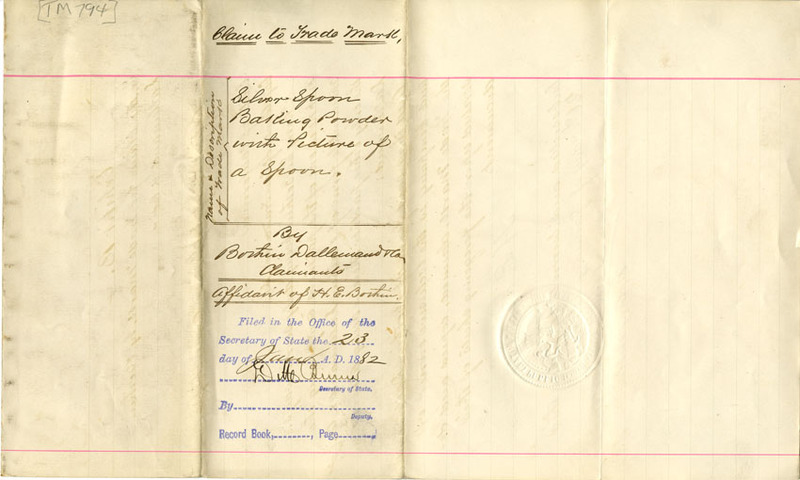 [TM 794]
Claim to Trade Mark,
Name & Description
of Trade Mark
Silver Spoon
Baking Powder
with Picture of
a Spoon.
By
Bothin Dallemand & Co
Claimants
Affidavit of H. E. Bothin.
Filed in the Office of the
Secretary of State the 23
day of June A. D. 1882
Secretary of State.
By
Deputy.
Record Book, Page